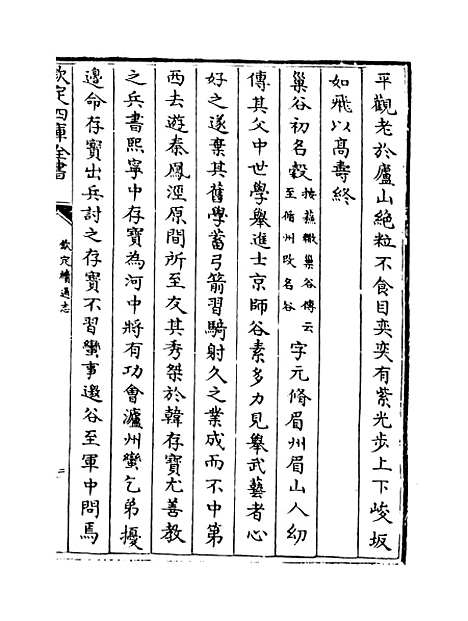 平觀老於廬山絶粒不食目奕奕有紫光步上下峻坂
如飛以髙壽終
巢谷初名縠
按蘇轍巢谷傳云
至循州改名谷
字元脩眉州眉山人幼
傳其父中世學舉進士京師谷素多力見舉武藝者心
好之遂棄其舊學蓄弓箭習騎射久之業成而不中第
西去遊秦鳳涇原間所至友其秀桀於韓存寶尤善教
之兵書熙寧中存寶為河中將有功㑹瀘州蠻乞弟擾
邊命存寶出兵討之存寶不習蠻事邀谷至軍中問焉
欽定四庫全書
欽定續通志
二